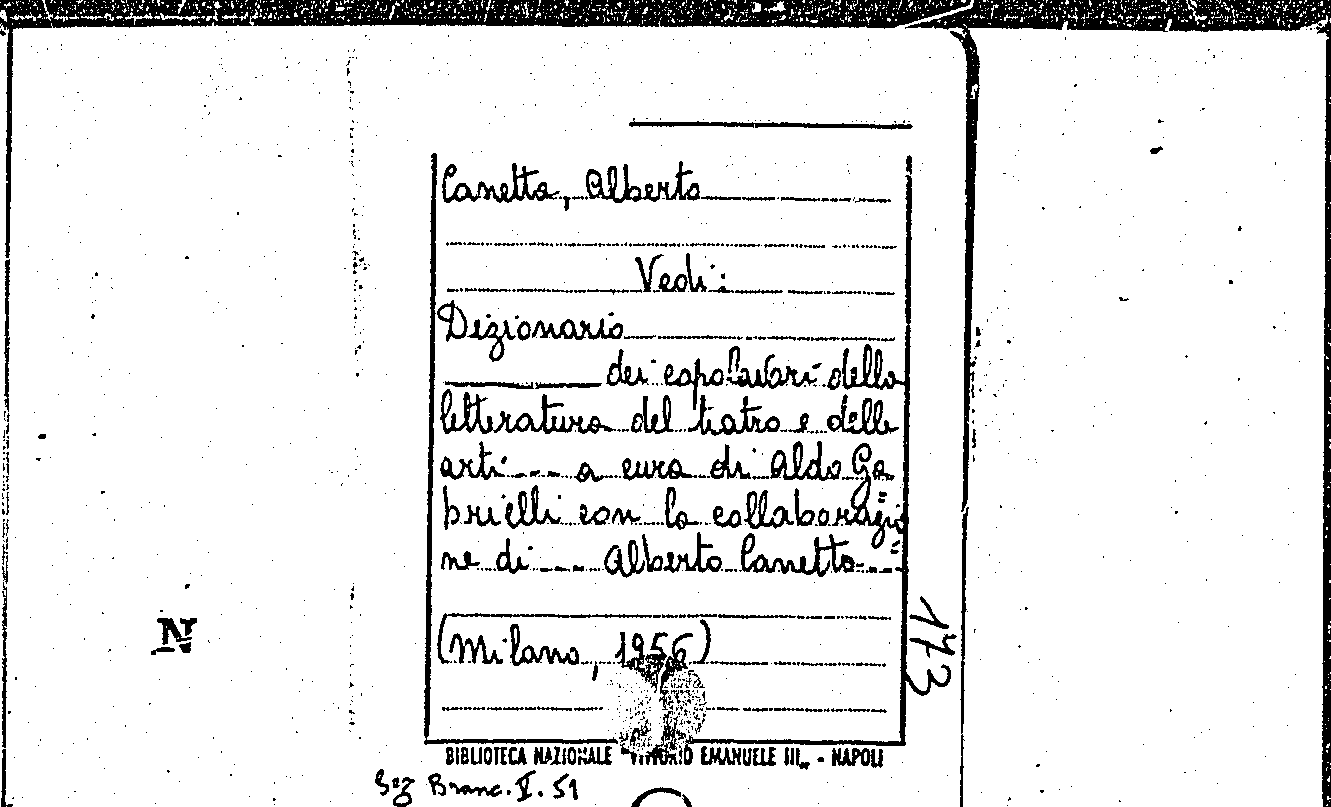 Canetta, Alberto
Vedi:
Dizionario
______ dei capolavori della
letteratura del teatro e delle
arti --- a cura di Aldo Ga=
brielli con la collaborazio=
ne di --- Alberto Canetta ---
(Milano, 1956)
173
N
BIBLIOTECA NAZIONALE "VITTORIO EMANUELE III„ - NAPOLI
Sez Branc. V. 51